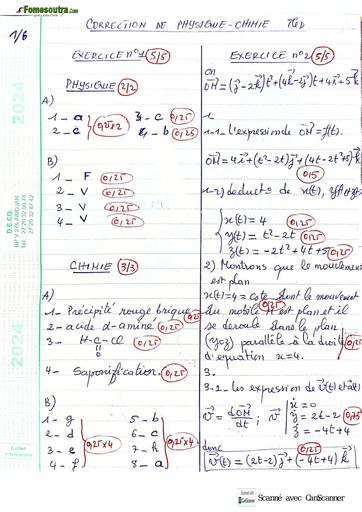 Fomesoutra.com
1/6
CORRECTION DE PHYSIQUE-CHIMIE
EXERCICE n°1 5/5
PHYSIQUE 2/2
A)
1 - a
2 - c
0,25x2
3 - c 0,25
4 - b 0,25
B)
1 - F 0,25
2 - V 0,25
3 - V 0,25
4 - V 0,25
CHIMIE 3/3
A)
1- Précipité rouge brique
2 - acide α-aminé 0,25
3 - H-C-Cl 0,25
O
4- Saponification 0,25
B)
1 - g
2 - d
3 - e
4 - f
0,25x4
5 - b
6 - c
7 - h
8 - a
0,25x4
EXERCICE n°2 5/5
on
1-1- L'expression de OM = f(t).
0,5
1-2) déduct° de x(t), y(t)
x(t) = 4 0,25
y(t) = t² - 2t 0,25
z(t) = -2t² + 4t + 5 0,25
2) Montrons que le mouvement
est plan
x(t) = 4 = cste dont le mouvement
du mobile M est plan et il
se déroule dans le plan
(yoz) parallèle à la droite
d'équation x = 4.
0,25
3.
3-1- les expression de v(t) et
v = dOM/dt ; v
ẋ = 0
ẏ = 2t - 2
ż = -4t + 4
0,75
donc 0,25
v(t) = (2t-2)j + (-4t+4)k
2024
D.E.CO.
BPV 25 ABIDJAN
2024
Scanné avec CamScanner